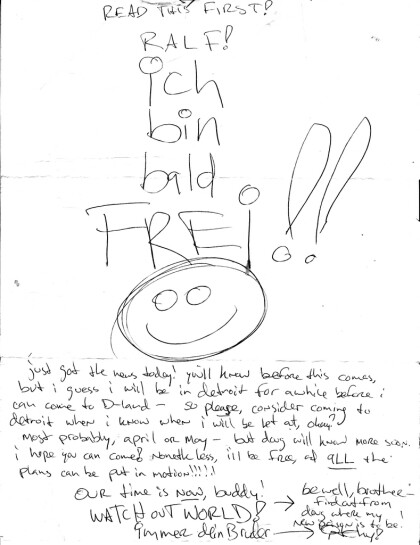 READ THIS FIRST!
RALF!
ich
bin
bald
FREi!!!
just got the news today! you'll know before this comes,
but i guess i will be in detroit for awhile before i
can come to D-land – so please, consider coming to
detroit when i know when i will be let out, okay?
most probably, april or may – but doug will know more soon.
i hope you can come! nonetheless, i'll be free and ALL the
plans can be put in motion!!!!!
OUR time is NOW, buddy!
WATCH OUT WORLD!
immer dein Bruder
be well, brother–
find out from
doug where my
new prison is to be.